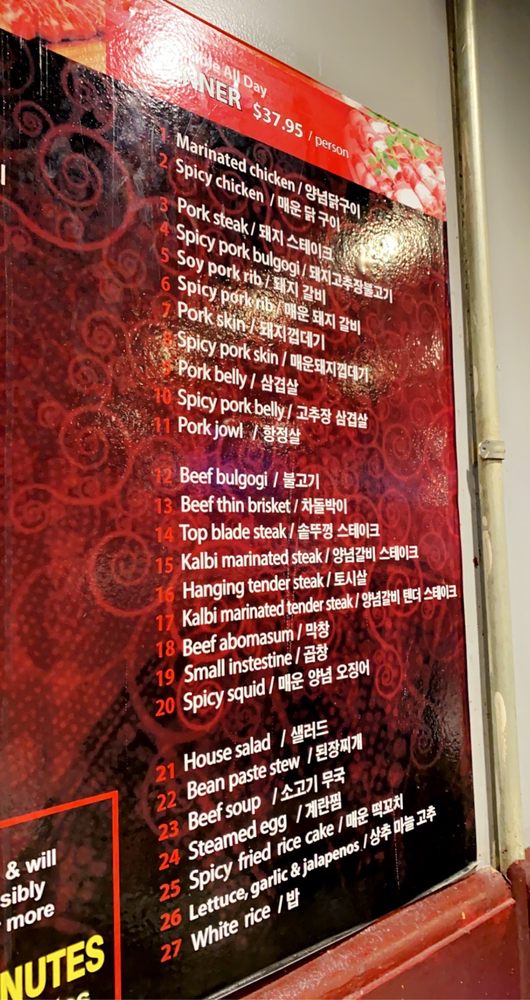 All Day
DINNER $37.95 / person
1 Marinated chicken / 양념닭구이
2 Spicy chicken / 매운 닭 구이
3 Pork steak / 돼지 스테이크
4 Spicy pork bulgogi / 돼지고추장불고기
5 Soy pork rib / 돼지 갈비
6 Spicy pork rib / 매운 돼지 갈비
7 Pork skin / 돼지껍데기
8 Spicy pork skin / 매운돼지껍데기
9 Pork belly / 삼겹살
10 Spicy pork belly / 고추장 삼겹살
11 Pork jowl / 항정살
12 Beef bulgogi / 불고기
13 Beef thin brisket / 차돌박이
14 Top blade steak / 솥뚜껑 스테이크
15 Kalbi marinated steak / 양념갈비 스테이크
16 Hanging tender steak / 토시살
17 Kalbi marinated tender steak / 양념갈비 텐더 스테이크
18 Beef abomasum / 막창
19 Small instestine / 곱창
20 Spicy squid / 매운 양념 오징어
21 House salad / 샐러드
22 Bean paste stew / 된장찌개
23 Beef soup / 소고기 무국
24 Steamed egg / 계란찜
25 Spicy fried rice cake / 매운 떡꼬치
26 Lettuce, garlic & jalapenos / 상추 마늘 고추
27 White rice / 밥
& will
sibly
more
NUTES